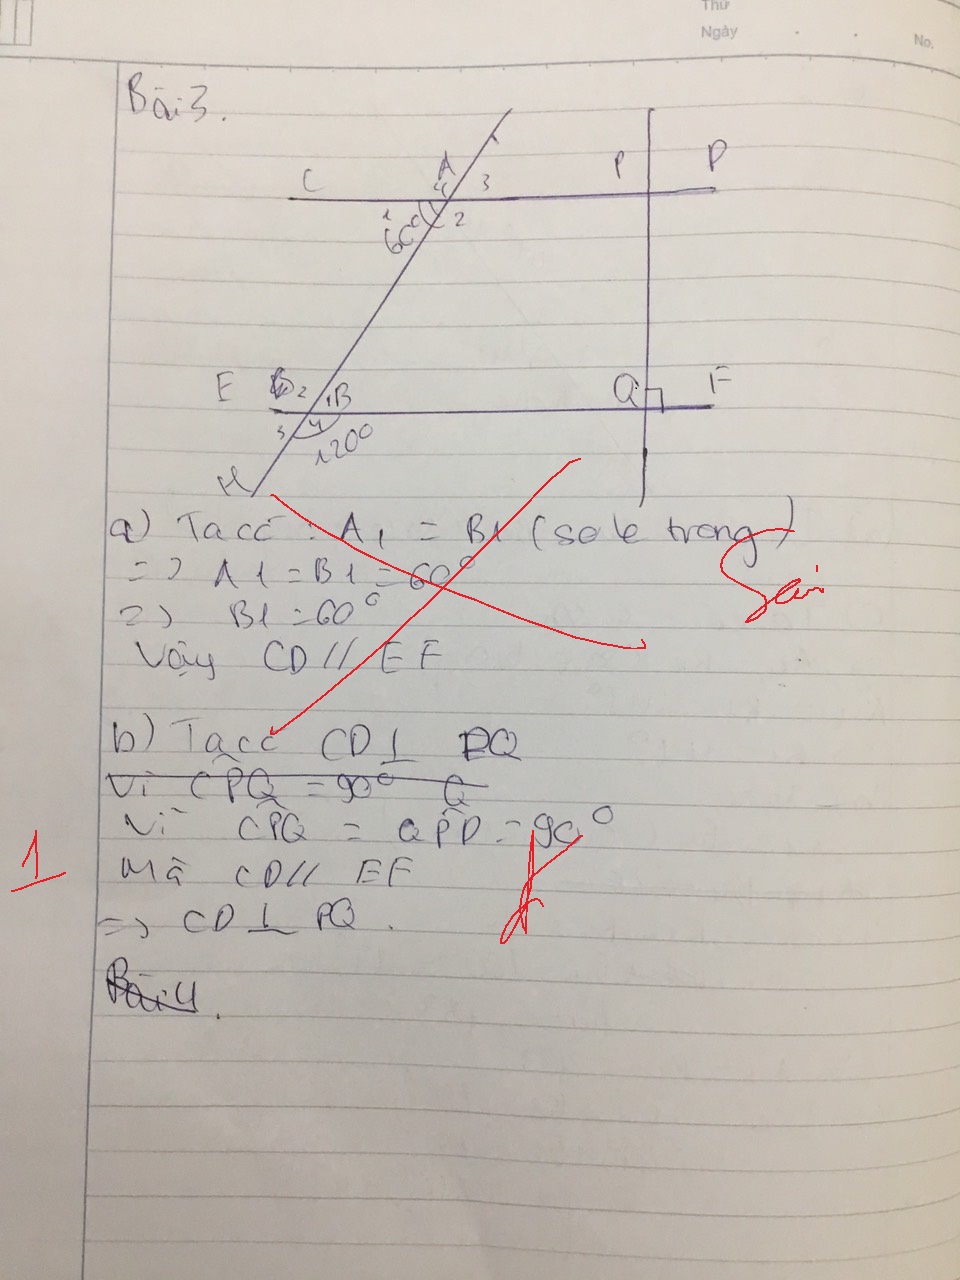 Thứ
Ngày
No.
Bài 3.
C A 4 3 P D
1 60° 2
E 2 1 B Q F
3 4 120°
H
a) Ta có : A1 = B1 (so le trong)
=> A1 = B1 = 60°
Sai
=> B1 = 60°
Vậy CD // EF
b) Ta có CD ⊥ PQ
Vì CPQ = 90° Q
Vì CPQ = QPD = 90°
1
Mà CD // EF
=> CD ⊥ PQ .
Bài 4.